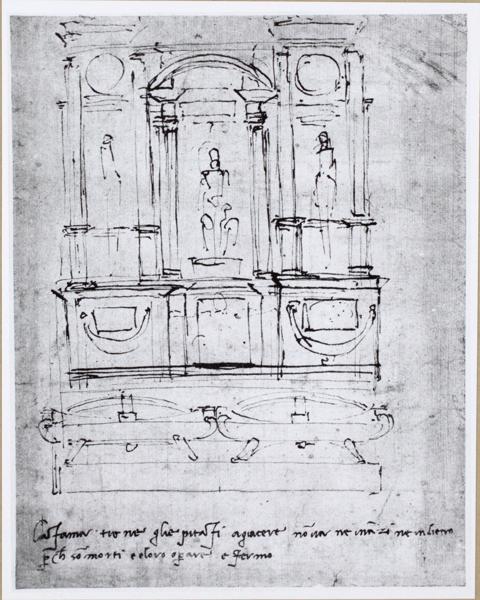 La fama tie ne glie pitafi a giacere nō va ne inā zi ne indietro
p ch sō morti e eloro operare e fermo